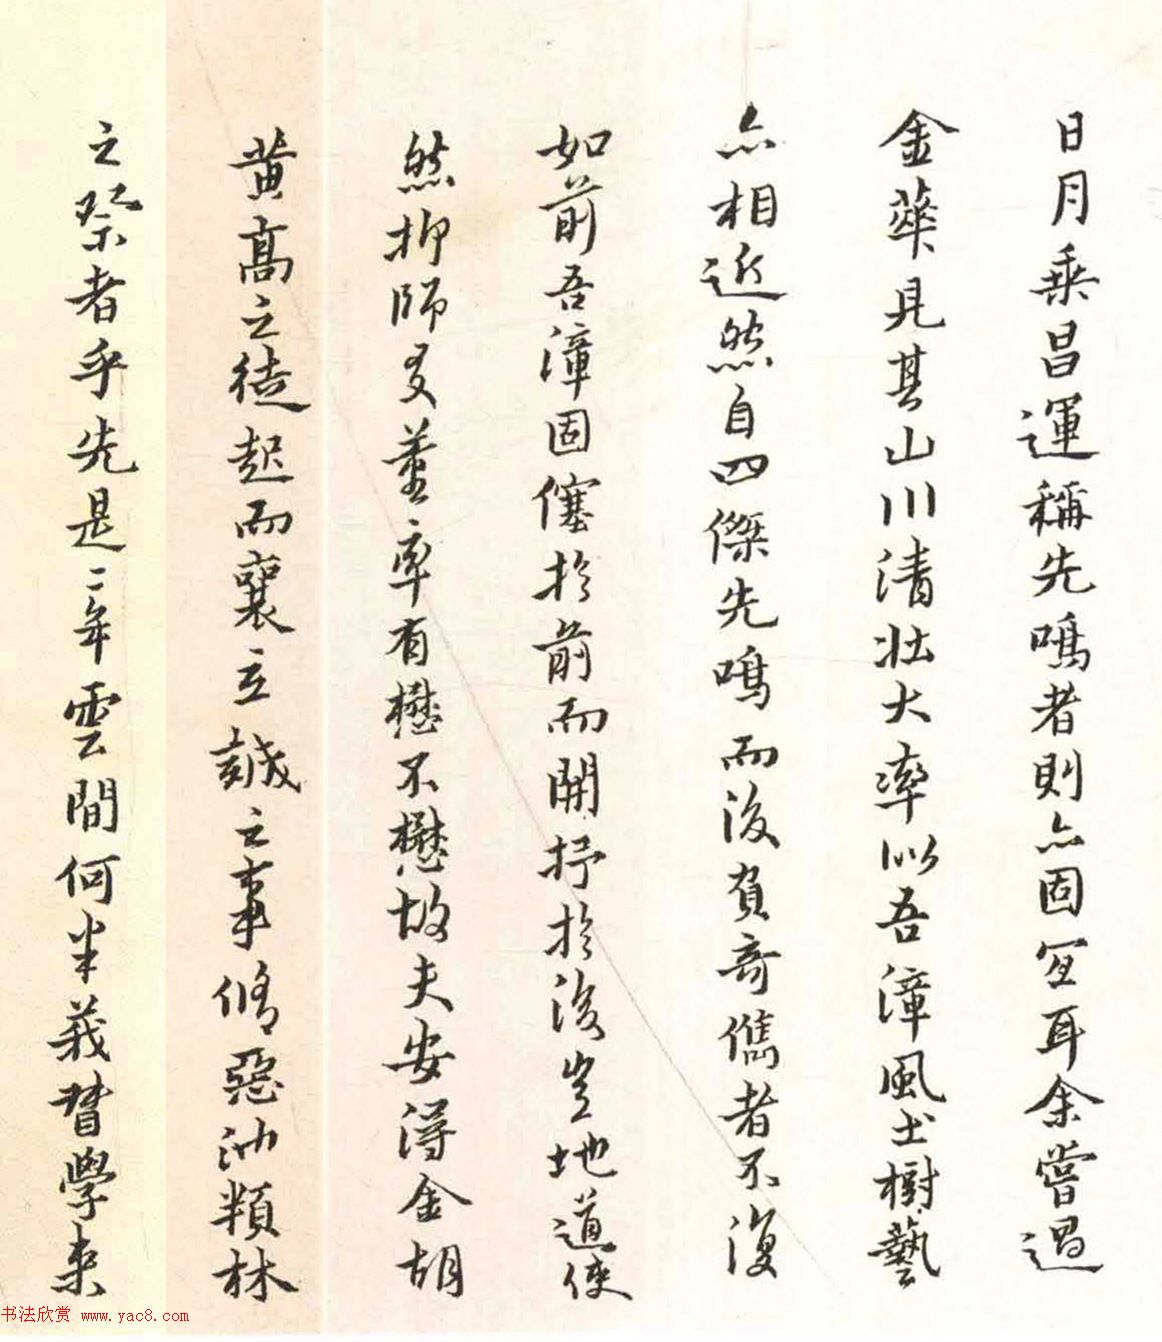 日月乗昌運稱先鳴者則亦固宜耳余嘗過
金華見其山川清壯大率似吾漳風土樹藝
亦相近然自四傑先鳴而後負奇儁者不復
如前吾漳固僿於前而開抒於後豈地道使
然抑師友董率有懋不懋故夫安得金胡
黄高之徒起而襄立誠之事脩惡沁類林
之祭者乎先是二年雲間何半莪督學来
书法欣赏 www.yac8.com